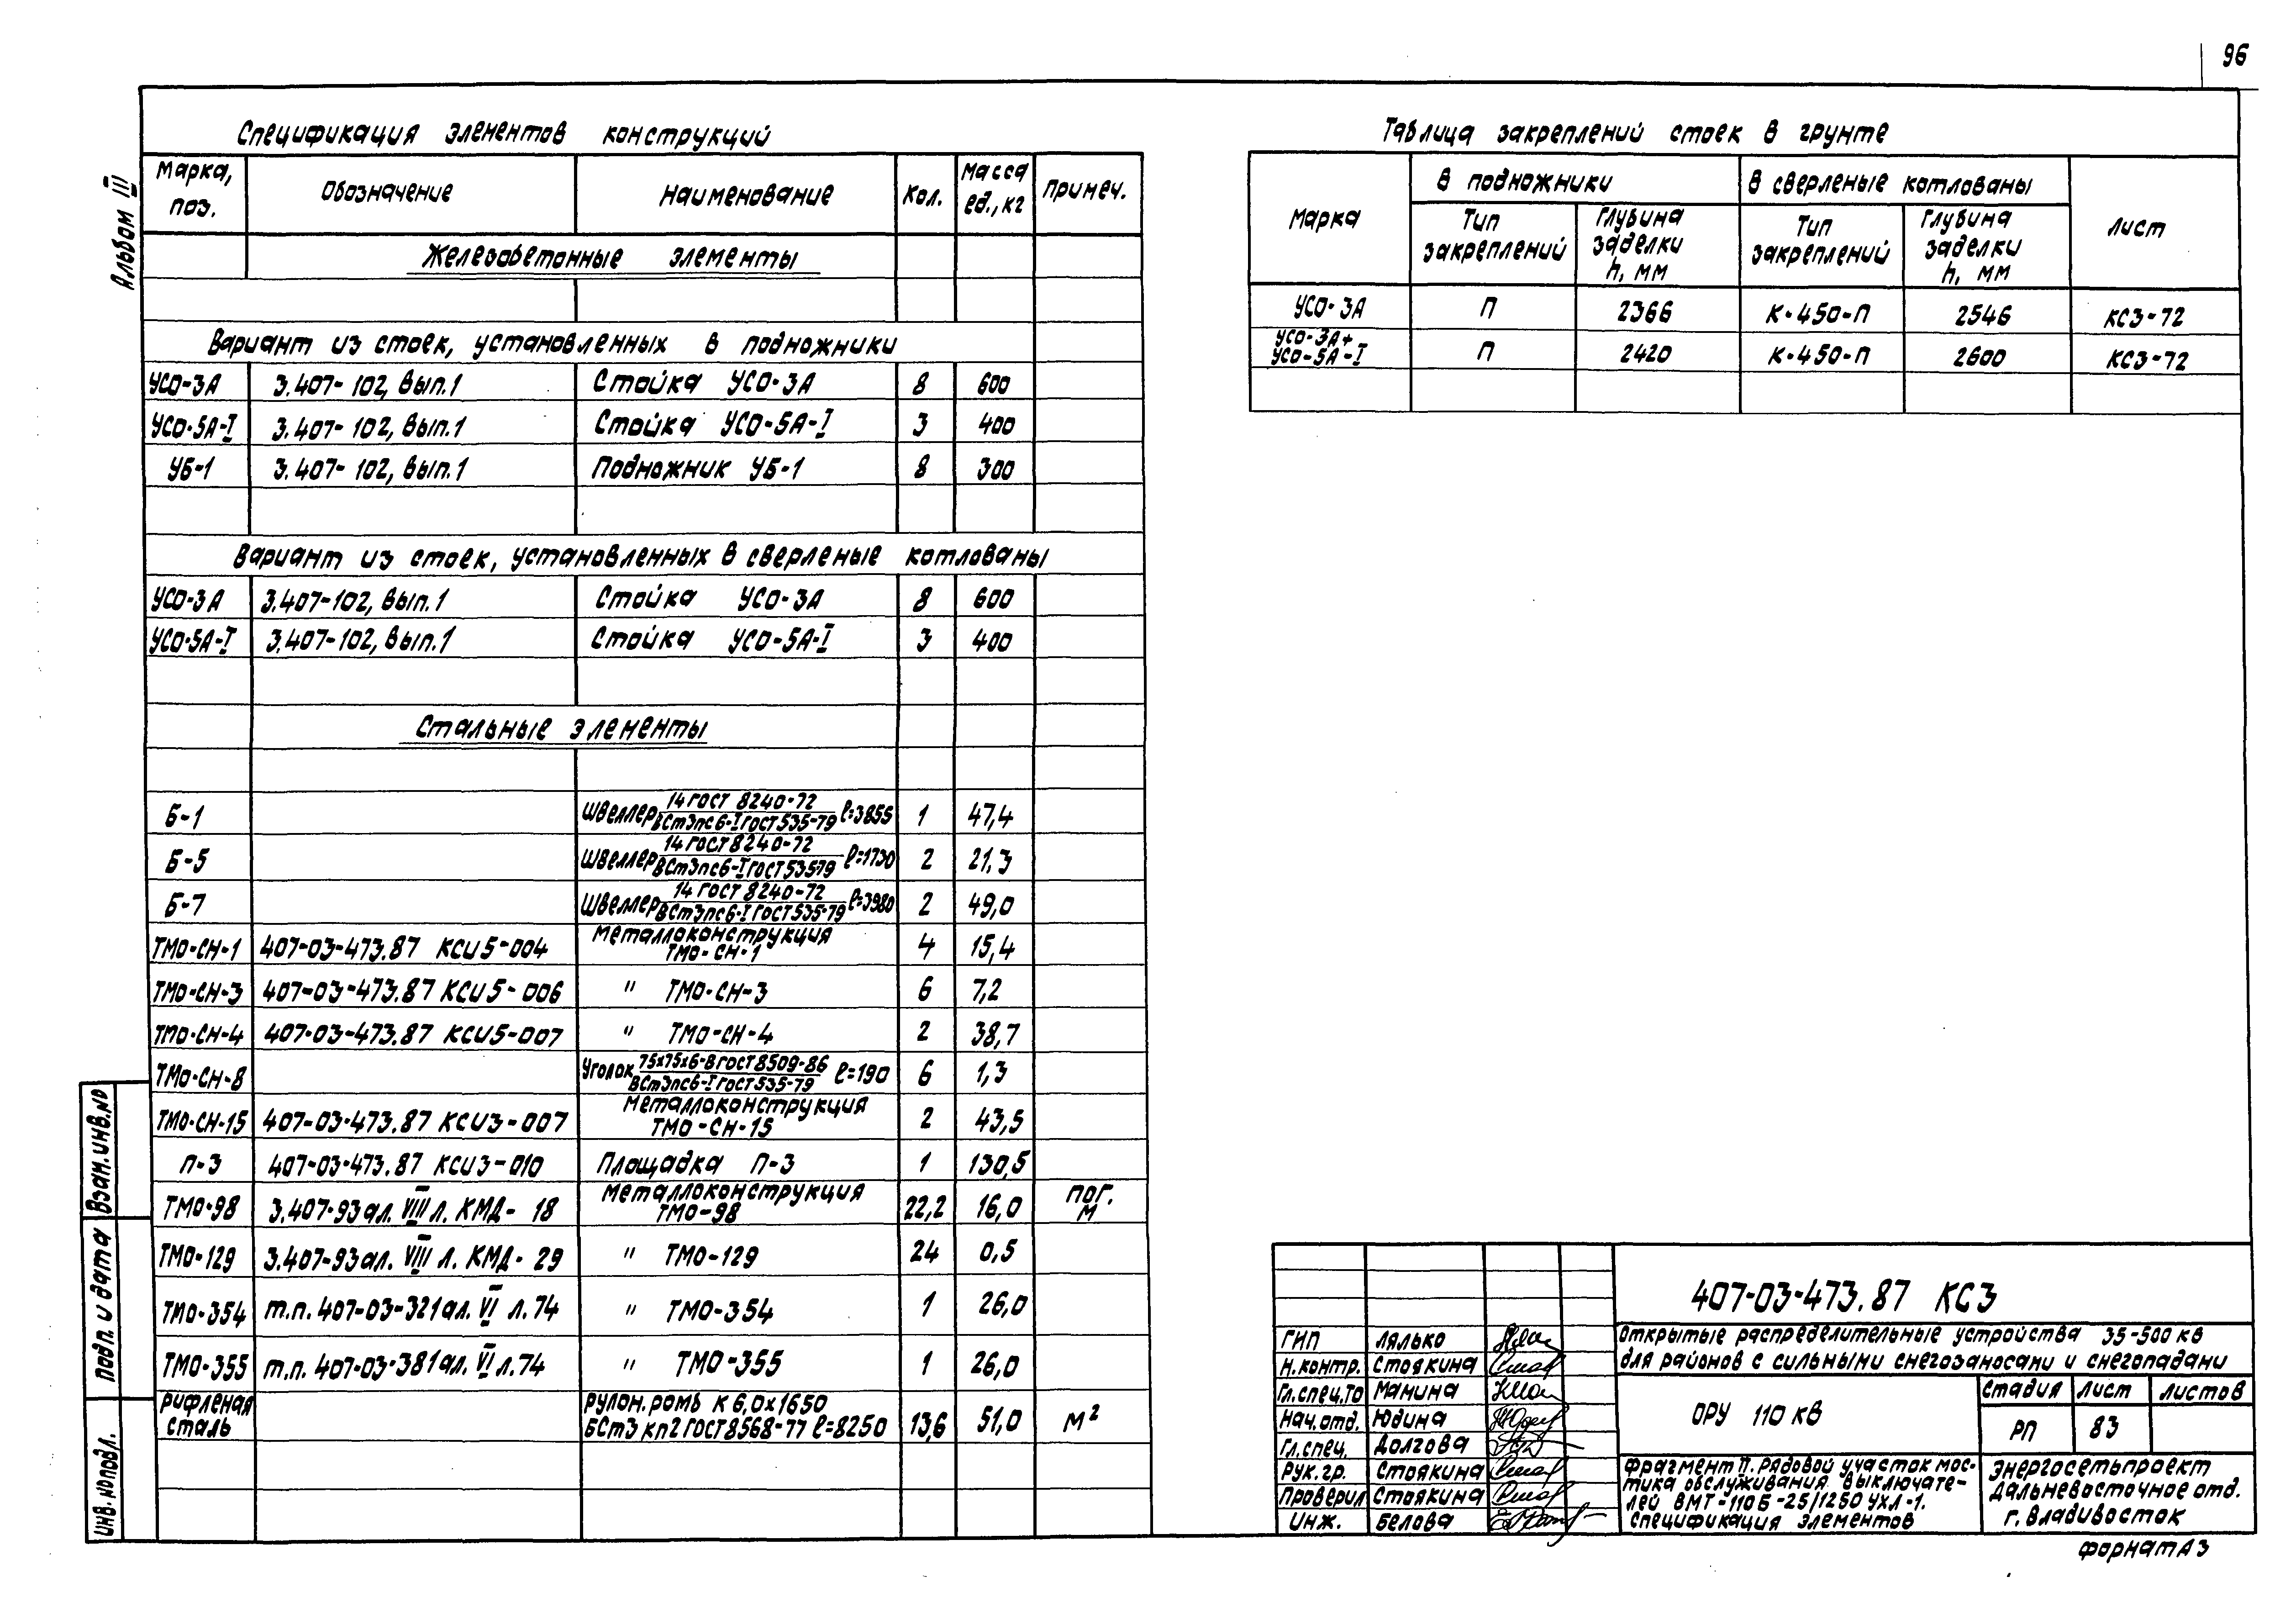 96
Альбом III
Спецификация элементов конструкций
Марка, поз. Обозначение Наименование Кол. Масса ед., кг Примеч.
Железобетонные элементы
Вариант из стоек, установленных в подножники
УСО-3А 3.407-102, вып.1 Стойка УСО-3А 8 600
УСО-5А-I 3.407-102, вып.1 Стойка УСО-5А-I 3 400
УБ-1 3.407-102, вып.1 Подножник УБ-1 8 300
Вариант из стоек, установленных в сверленые котлованы
УСО-3А 3.407-102, вып.1 Стойка УСО-3А 8 600
УСО-5А-I 3.407-102, вып.1 Стойка УСО-5А-I 3 400
Стальные элементы
Б-1 Швеллер 14 ГОСТ 8240-72 / ВСт3пс6-I ГОСТ 535-79 ℓ=3855 1 47,4
Б-5 Швеллер 14 ГОСТ 8240-72 / ВСт3пс6-I ГОСТ 535-79 ℓ=1730 2 21,3
Б-7 Швеллер 14 ГОСТ 8240-72 / ВСт3пс6-I ГОСТ 535-79 ℓ=3980 2 49,0
ТМО-СН-1 407-03-473.87 КСИ5-004 Металлоконструкция ТМО-СН-1 4 15,4
ТМО-СН-3 407-03-473.87 КСИ5-006 " ТМО-СН-3 6 7,2
ТМО-СН-4 407-03-473.87 КСИ5-007 " ТМО-СН-4 2 38,7
ТМО-СН-8 Уголок 75х75х6-В ГОСТ 8509-86 / ВСт3пс6-I ГОСТ 535-79 ℓ=190 6 1,3
ТМО-СН-15 407-03-473.87 КСИ3-007 Металлоконструкция ТМО-СН-15 2 43,5
П-3 407-03-473.87 КСИ3-010 Площадка П-3 1 130,5
ТМО-98 3.407-93 ал. VIII л. КМД-18 Металлоконструкция ТМО-98 22,2 16,0 пог. м
ТМО-129 3.407-93 ал. VIII л. КМД-29 " ТМО-129 24 0,5
ТМО-354 т.п. 407-03-321 ал. VI л.74 " ТМО-354 1 26,0
ТМО-355 т.п. 407-03-381 ал. VI л.74 " ТМО-355 1 26,0
Рифленая сталь Рулон. ромб К 6,0х1650 БСт3кп2 ГОСТ 8568-77 ℓ=8250 13,6 51,0 м²
Таблица закреплений стоек в грунте
Марка В подножники В сверленые котлованы Лист
Тип закреплений Глубина заделки h, мм Тип закреплений Глубина заделки h, мм
УСО-3А П 2366 К-450-П 2546 КС3-72
УСО-3А+ УСО-5А-I П 2420 К-450-П 2600 КС3-72
Взам. инв. №
Подп. и дата
Инв. № подл.
407-03-473.87 КС3
Открытые распределительные устройства 35-500 кв
для районов с сильными снегозаносами и снегопадами
ГИП Лялько
Н.контр. Стоякина
Гл.спец.ТО Манина
Нач.отд. Юдина
Гл.спец. Долгова
Рук.гр. Стоякина
Проверил Стоякина
Инж. Белова
ОРУ 110 кв
Стадия Лист Листов
РП 83
Фрагмент П. Рядовой участок мос-
тика обслуживания выключате-
лей ВМТ-110Б-25/1250 УХЛ-1.
Спецификация элементов
Энергосетьпроект
Дальневосточное отд.
г. Владивосток
Формат А3